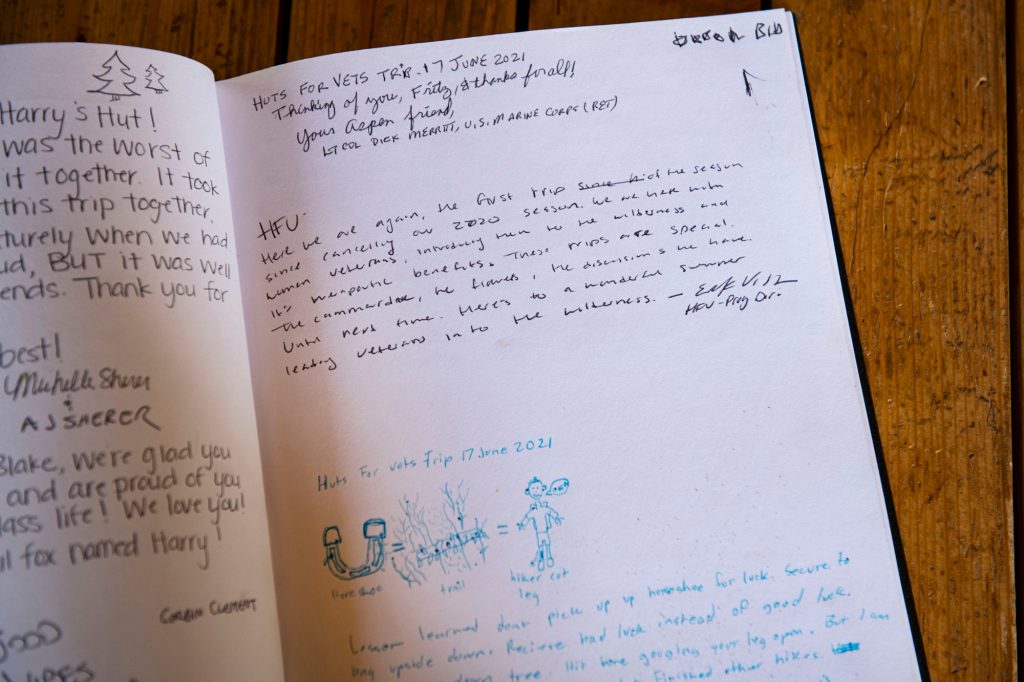 Harry's Hut!
was the worst of
it together. It took
this trip together.
turely when we had
ud, BUT it was well
ends. Thank you for
best!
Michelle Sherer
&
AJ SHERER
Blake, we're glad you
and are proud of you
lass life! We love you!
il fox named Harry!
CORBIN CLEMENT
GOOD
HUTS FOR VETS TRIP - 17 JUNE 2021
Thinking of you, Fritz, & thanks for all!
Your Aspen friend,
LT COL DICK MERRITT, U.S. MARINE CORPS (RET)
HFV-
Here we are again, the first trip of the season
since cancelling our 2020 season. We are here with
women veterans, introducing them to the wilderness and
it's therapeutic benefits. These trips are special.
The commaradae, the flowers, the discussions we have.
Until next time. Here's to a wonderful summer
leading veterans into the wilderness. —
HFV-Prog Dir.
Huts For vets Trip 17 June 2021
= =
Horeshoe trail hiker cut
leg
Lesson learned dont pick up up horseshoe for luck. Secure to
bag upside down. Recieve bad luck instead of good luck.
down tree. Hit bone gouging your leg open. But I am
finished other hikes.